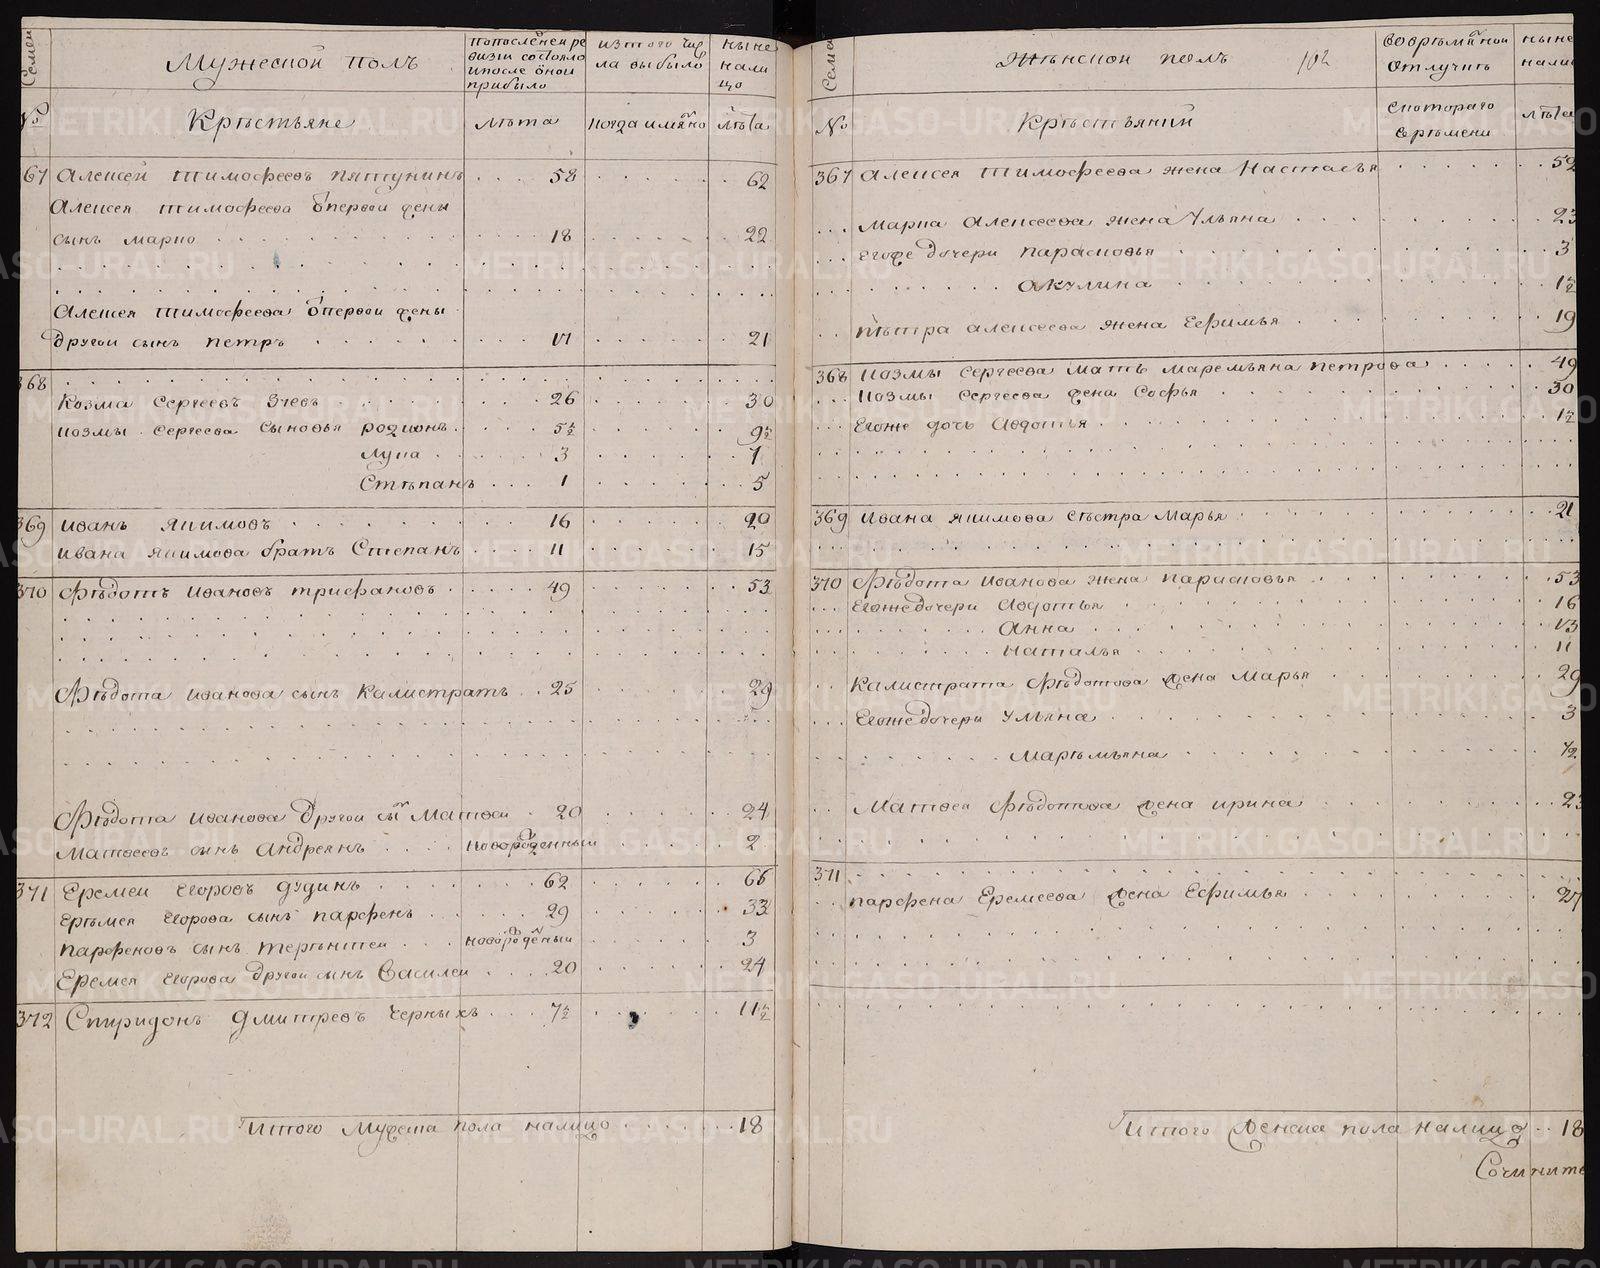 Семеи
Мужеской полъ
попоследнеи ре
визіи состояло
ипосле оной
прибыло
изтого чис
ла выбыло
ныне
нали
цо
№
Крѣстьяне
лѣта
когда имяно
лѣта
67 Алексеи тимофеевъ пятунинъ 58 62
Алексея тимофеева отпервои жены
сынъ марко 18 22
Алексея тимофеева отпервои жены
другои сынъ петръ 17 21
368
Козма Сергеевъ Зуевъ 26 30
козмы Сергеева Сыновья родионъ 5½ 9½
лука 3 7
Стѣпанъ 1 5
369 иванъ якимовъ 16 20
ивана якимова братъ Степанъ 11 15
370 Фѣдотъ ивановъ трифановъ 49 53
Фѣдота иванова сынъ калистратъ 25 29
Фѣдота иванова другои сынъ Матвеи 20 24
Матвеевъ сынъ андреянъ новорожденныи 2
371 Еремеи егоровъ дудинъ 62 66
Ерѣмея Егорова сынъ парфенъ 29 33
парфеновъ сынъ терѣнтеи новорожденыи 3
Еремея егорова другои сынъ Василеи 20 24
372 Спиридонъ дмитревъ черныхъ 7½ 11½
Итого мужеска пола налицо 18
Семе
Жѣнскои полъ
102
вовремяннои
отлучкѣ
ныне
нали
№
Крѣстьянки
скотораго
верѣмени
лѣта
367 Алексея тимофеева жена Настасья 52
марка алексеева жена Ульяна 23
егоже дочери парасковья 3
акулина 1½
пѣтра алексеева жена Ефимья 19
368 козмы сергеева мать маремьяна петрова 49
козмы сергеева жена Софья 30
Егоже дочь авдотья 1½
369 ивана якимова сѣстра Марья 21
370 Фѣдота иванова жена парасковья 53
Егоже дочери авдотья 16
анна 13
наталья 11
калистрата Фѣдотова жена Марья 29
Егоже дочери Ульяна 3
марѣмьяна ½
Матвея Фѣдотова жена ирина 23
371
парфена Еремеева жена Ефимья 27
Итого женска пола налицо 18
Сочините
METRIKI.GASO-URAL.RU